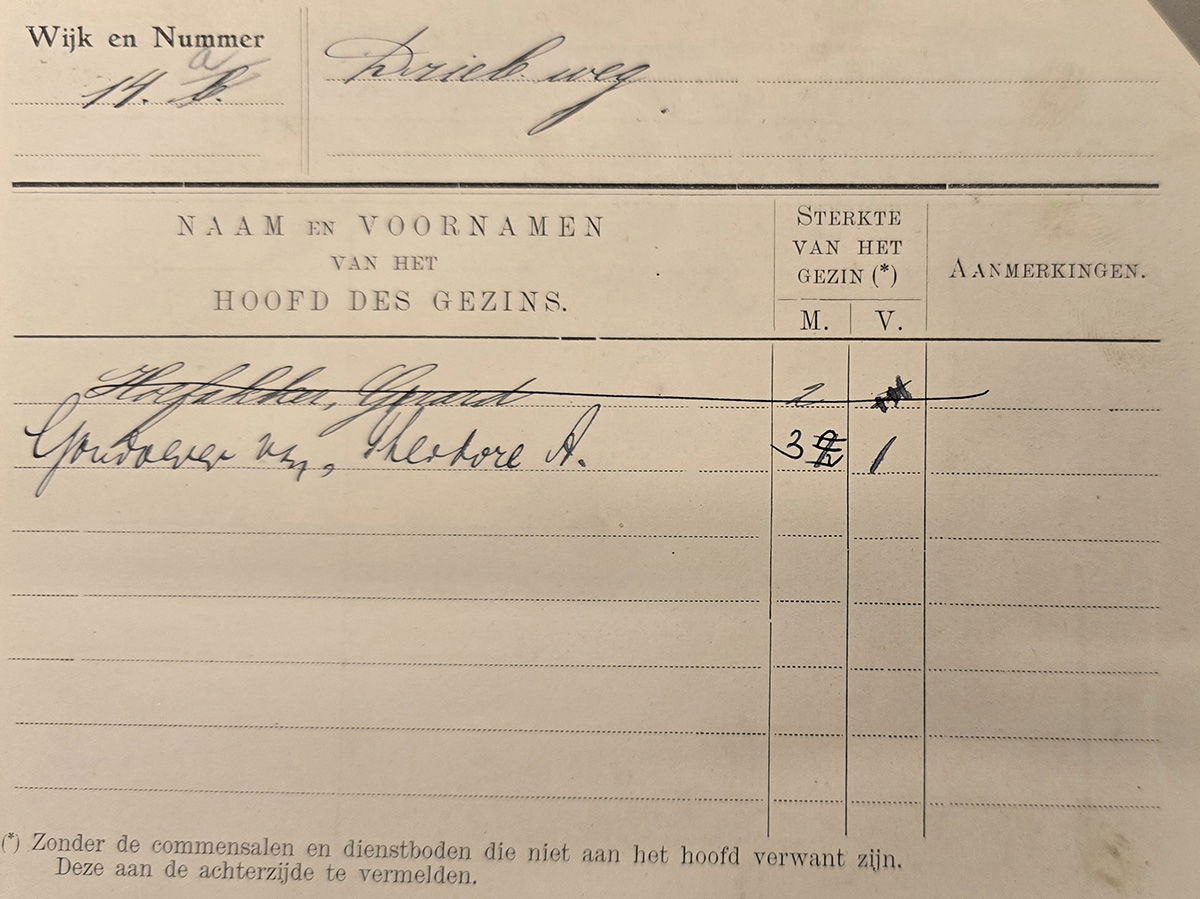 Wijk en Nummer
14. a
Drieb. weg
NAAM EN VOORNAMEN
VAN HET
HOOFD DES GEZINS.
STERKTE
VAN HET
GEZIN (*)
M. V.
AANMERKINGEN.
Hoefakker, Gerard 2
Goudoever van, Theodore A. 3 1
(*) Zonder de commensalen en dienstboden die niet aan het hoofd verwant zijn.
Deze aan de achterzijde te vermelden.